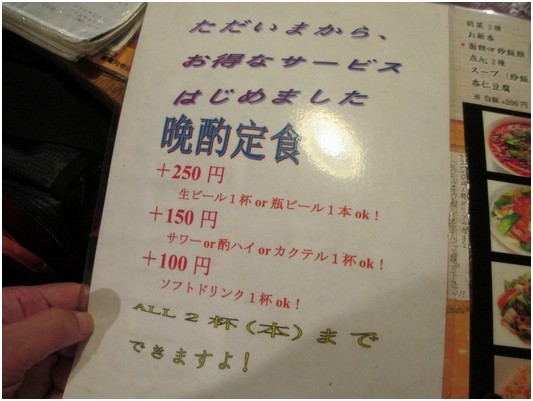 ただいまから、
お得なサービス
はじめました
晩酌定食
＋250 円
生ビール１杯 or 瓶ビール１本 ok！
＋150 円
サワー or 酎ハイ or カクテル１杯 ok！
＋100 円
ソフトドリンク１杯 ok！
ALL ２杯（本）まで
できますよ！
前菜２種
お新香
点心２種
杏仁豆腐